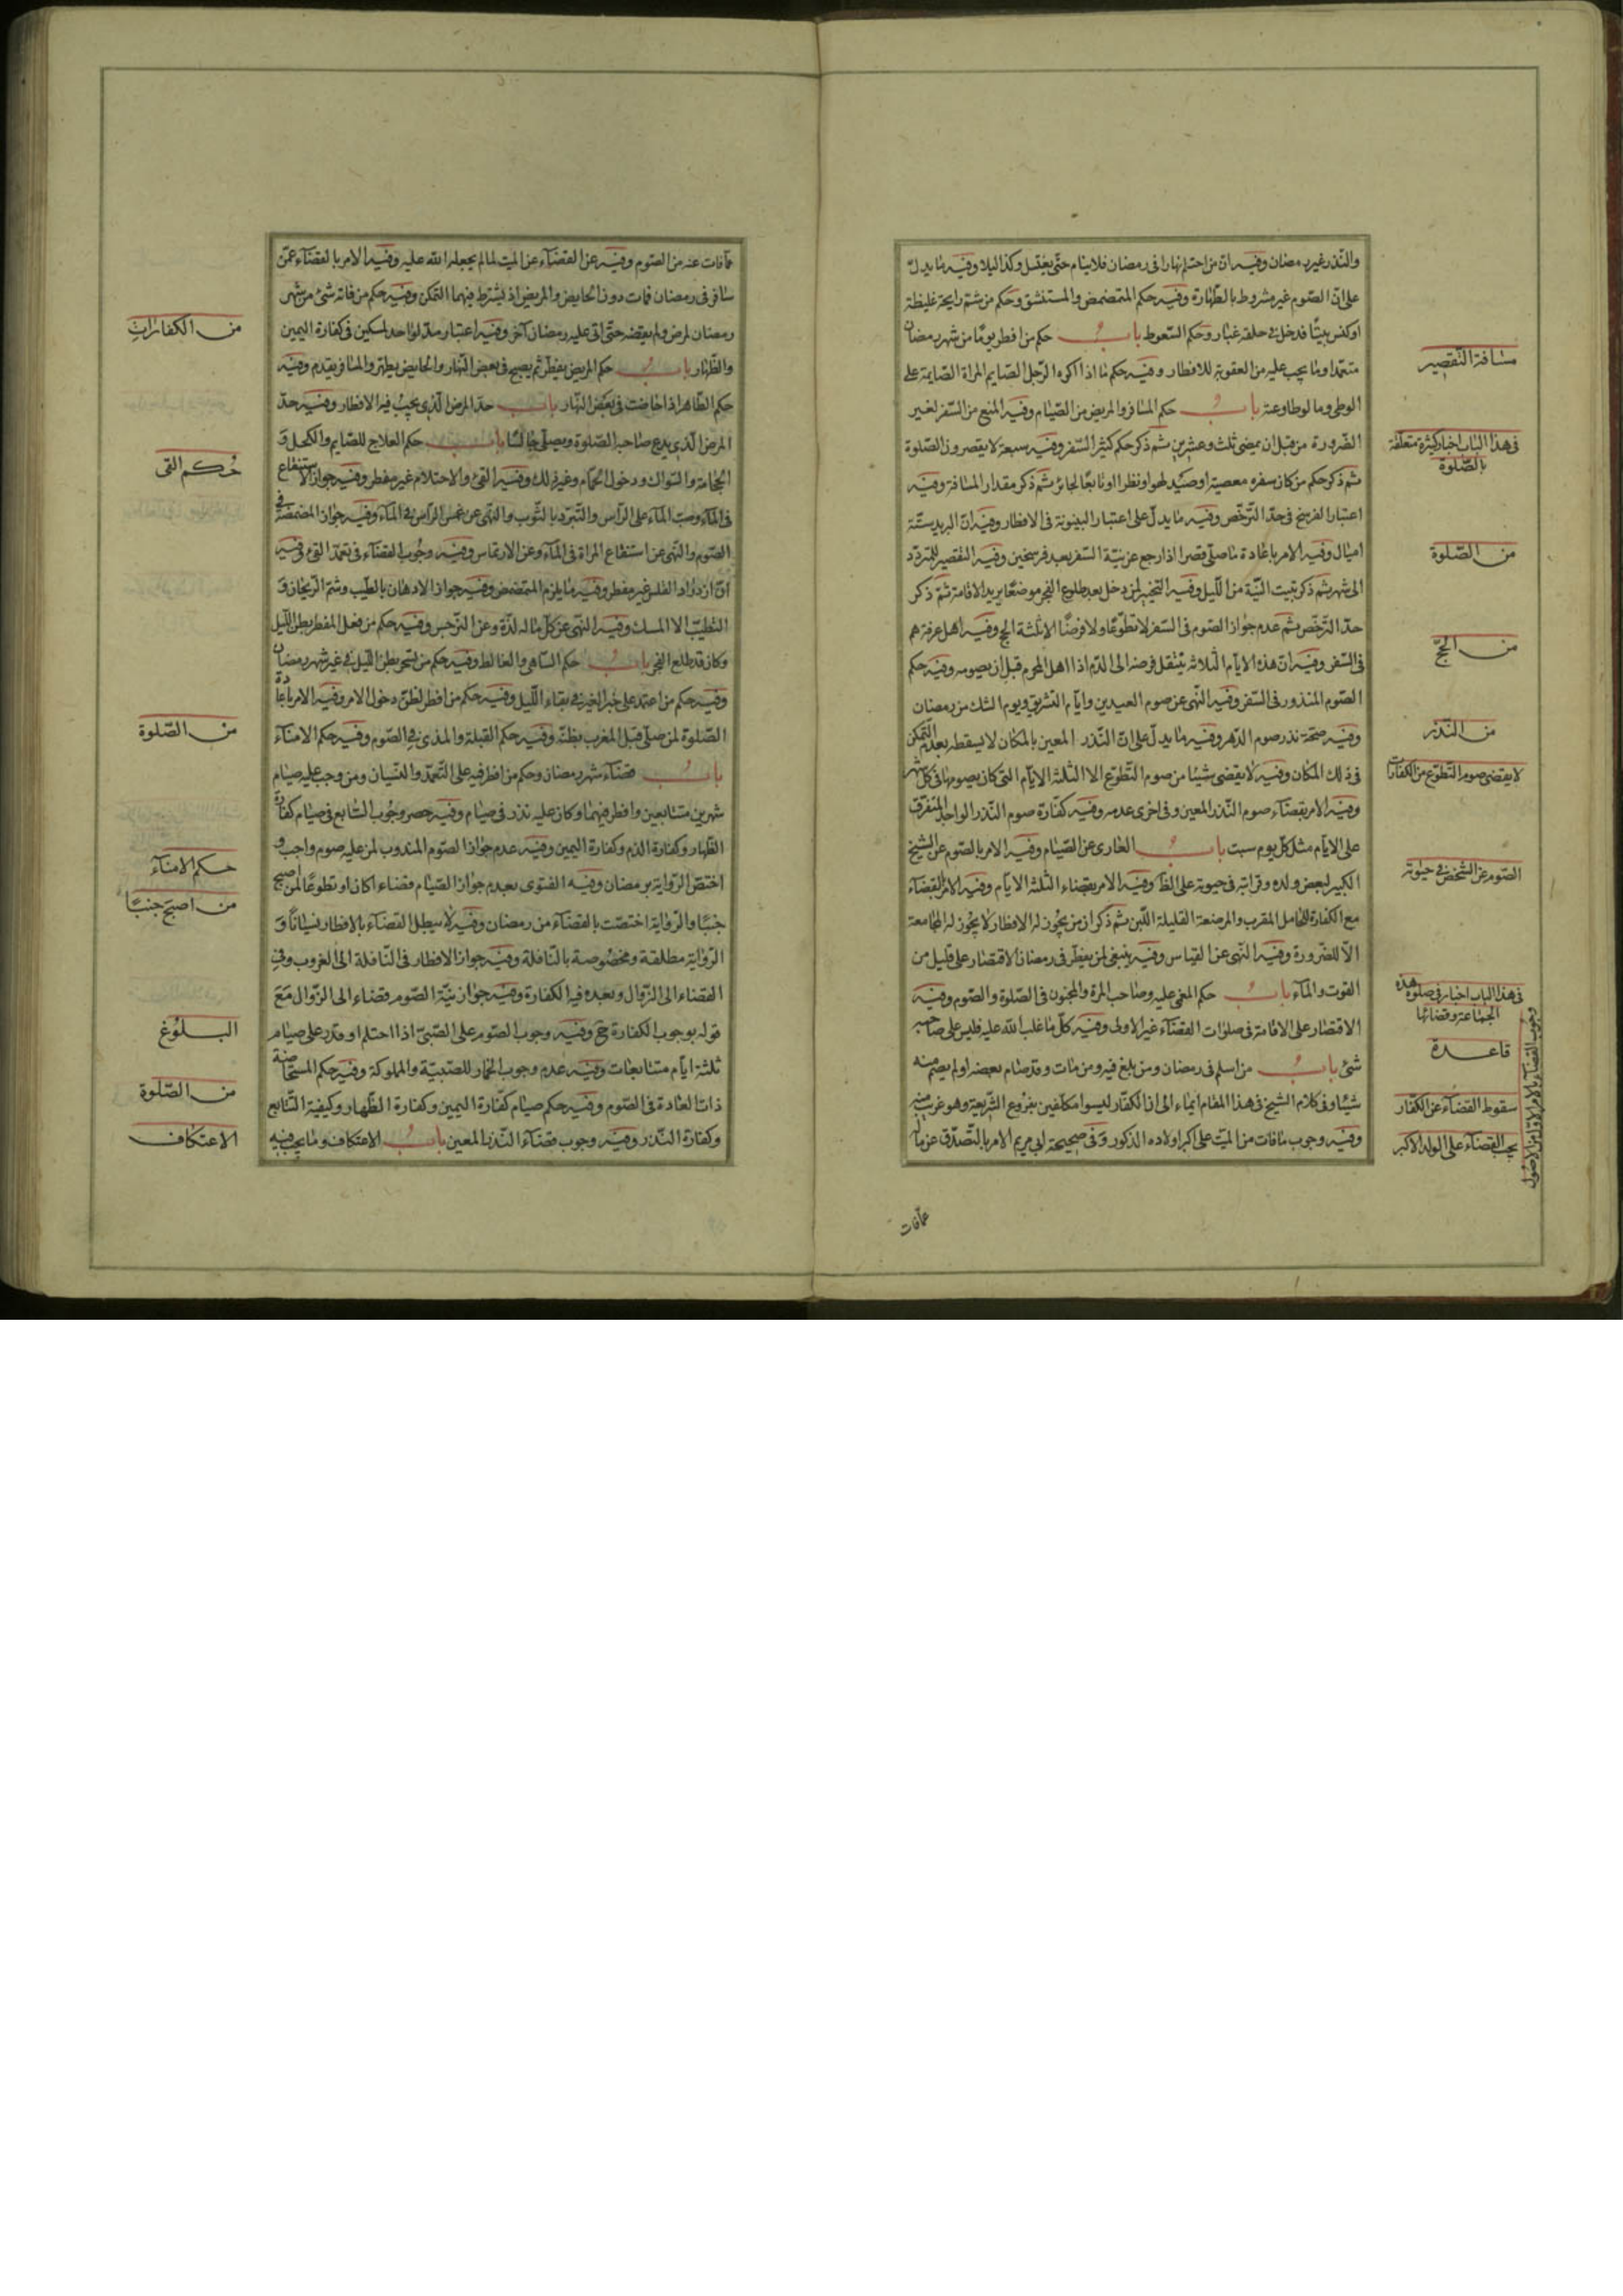 والنّذر غير رمضان وفيه انّ من احتلم نهارا فى رمضان فلا ينام حتّى يغتسل وكذا ليلا وفيه ما يدلّ
على انّ الصّوم غير مشروط بالطّهارة وفيه حكم المتمضمض والمستنشق وحكم من شمّ رايحة غليظة
او كنس بيتًا فدخل فى حلقه غبار وحكم السّعوط باب حكم من افطر يومًا من شهر رمضان
متعمّدا وما يجب عليه من العقوبة للافطار وفيه حكم ما اذا اكره الرّجل الصّايم المراة الصّايمة على
الوطى وما لو طاوعته باب حكم المسافر والمريض من الصّيام وفيه المنع من السّفر لغير
الضّرورة من قبل ان يمضى ثلث وعشرين ثمّ ذكر حكم كثير السّفر وفيه سبعة لا يقصرون الصّلوة
ثم ذكر حكم من كان سفره معصية او صيد لهو او نظرا او تابعًا لجائر ثمّ ذكر مقدار المسافة وفيه
اعتبار الفرسخ فى حدّ الترخّص وفيه ما يدلّ على اعتبار البينونة فى الافطار وفيه انّ البريد ستّة
اميال وفيه الامر باعادة ما صلّى قصرا اذا رجع عن نيّة السّفر بعد فرسخين وفيه التقصير للمتردّد
الى شهر ثم ذكر تبيت النيّة من اللّيل وفيه التخيير لمن دخل بعد طلوع الفجر موضعًا يريد الاقامة ثمّ ذكر
حدّ الترخّص ثم عدم جواز الصّوم فى السّفر لا تطوّعًا ولا فرضًا الا ثلثة الحج وفيه اهل عرفة هم
فى السّفر وفيه انّ هذه الايام الثلاثة ينتقل فرضه الى الدّم اذا اهلّ المحرم قبل ان يصومه وفيه حكم
الصّوم المنذور فى السّفر وفيه النّهى عن صوم العيدين وايّام التشريق ويوم الشك من رمضان
وفيه صحّة نذر صوم الدّهر وفيه ما يدلّ على انّ النّذر المعين بالمكان لا يسقط بعدم التّمكن
فى ذلك المكان وفيه لا يقضى شيئا من صوم التّطوّع الا الثلثة الايّام التى كان يصومها فى كلّ شهر
وفيه الامر بقضآء صوم النّذر المعين وفى اخرى عدمه وفيه كفّارة صوم النّذر الواحد المتفرّق
على الايّام مثل كلّ يوم سبت باب العارى عن الصّيام وفيه الامر بالصّوم عن الشيخ
الكبير لبعض ولده وقرابته فى حيوته على الظآ وفيه الامر بقضاء الثلثة الايّام وفيه الامر بالقضآء
مع الكفارة للحامل المقرب والمرضعة القليلة اللّبن ثم ذكر ان من يجوز له الافطار لا يجوز له المجامعة
الّا للضّرورة وفيه النّهى عن القياس وفيه ينبغى لمن يفطر فى رمضان الاقتصار على قليل من
القوت والمآء باب حكم المغمى عليه وصاحب المرة والمجنون فى الصّلوة والصّوم وفيه
الاقتصار على الاقامة فى صلوات القضآء غير الاولى وفيه كلّ ما غلب الله عليه فليس على صاحبه
شئ باب من اسلم فى رمضان ومن بلغ فيه ومن مات وقد صام بعضه او لم يصم منه
شيئا وفى كلام الشيخ فى هذا المقام ايماء الى ان الكفّار ليسوا مكلّفين بفروع الشّريعة وهو غريب منه
وفيه وجوب ما فات من الميّت على اكبر اولاده الذّكور وفى صحيحة ابى مريم الامر بالتّصدّق عنه ما
عمّا فات
مسافة التّقصير
فى هذا الباب اخبار كثيرة متعلّقة
بالصّلوة
من الصّلوة
من الحجّ
من النّذر
لا يقضى صوم التّطوّع من الكفارات
الصّوم عن الشّخص فى حيوته
فى هذا الباب اخبار فى صلوة هذه
الجماعة وقضائها
قاعدة
سقوط القضآء عن الكفّار
يجب القضآء على الولد الاكبر
وجوب القضآء بالامر الاوّل من الاصول
عمّا فات عنه من الصّوم وفيه عن القضآء عن الميّت لما لم يجعله الله عليه وفيه الامر بالقضآء عمّن
سافر فى رمضان فمات دون الحايض والمريض اذ يشترط فيهما التمكّن وفيه حكم من فاته شئ من شهر
رمضان لمرض ولم يقضه حتّى اتى عليه رمضان آخر وفيه اعتبار مدّ لواحد لمسكين فى كفارة اليمين
والظّهار باب حكم المريض يفطر ثم يصح فى بعض النّهار والحايض يطهر والمسافر يقدم وفيه
حكم الطّاهر اذا حاضت فى بعض النّهار باب حدّ المرض الّذى يجب فيه الافطار وفيه حدّ
المرض الّذى يدع صاحبه الصّلوة ويصلّى جالسًا باب حكم العلاج للصّايم والكحل و
الحجامة والسّواك ودخول الحمّام وغير ذلك وفيه القئ والاحتلام غير مفطر وفيه جواز الاستنقاع
فى المآء وصبّ المآء على الرّاس والتّبرّد بالثّوب والنّهى عن غمس الرّاس فى المآء وفيه جواز المضمضة فى
الصّوم والنّهى عن استنقاع المراة فى المآء وعن الارتماس وفيه وجوب القضآء فى تعمّد القئ وفيه
انّ ازدراد القلس غير مفطر وفيه ما يلزم المتمضمض وفيه جواز الادهان بالطّيب وشمّ الرّيحان و
التطيّب الا المسك وفيه النّهى عن كلّ ما له لذّة وعن النّرجس وفيه حكم من فعل المفطر بظن اللّيل
وكان قد طلع الفجر باب حكم السّاهى والغالط وفيه حكم من تسحّر بظن اللّيل فى غير شهر رمضان
وفيه حكم من اعتمد على خبر الغير فى بقاء اللّيل وفيه حكم من افطر لظنّ دخول الامر وفيه الامر باعادة
الصّلوة لمن صلّى قبل المغرب بظنّه وفيه حكم القبلة والمذى فى الصّوم وفيه حكم الامنآء
باب قضآء شهر رمضان وحكم من افطر فيه على التّعمّد والنّسيان ومن وجب عليه صيام
شهرين متتابعين وافطر فيهما او كان عليه نذر فى صيام وفيه حصر وجوب التتابع فى صيام كفّارة
الظّهار وكفارة الدّم وكفارة اليمين وفيه عدم جواز الصّوم المندوب لمن عليه صوم واجب و
اختصّ الرّواية برمضان وفيه الفتوى بعدم جواز الصّيام قضاء اكان او تطوعًا لمن اصبح
جنبًا والرّواية اختصّت بالقضآء من رمضان وفيه لا يبطل القضآء بالافطار نسيانًا و
الرّواية مطلقة ومخصوصة بالنّافلة وفيه جواز الافطار فى النّافلة الى الغروب وفى
القضاء الى الزّوال وبعده فيه الكفارة وفيه جواز نيّة الصّوم قضاء الى الزّوال مع
قوله بوجوب الكفارة ح وفيه وجوب الصّوم على الصّبىّ اذا احتلم او قدر على صيام
ثلثة ايّام متتابعات وفيه عدم وجوب الخمار للصّبيّة والمملوكة وفيه حكم المستحاضة
ذات العادة فى الصّوم وفيه حكم صيام كفّارة اليمين وكفارة الظّهار وكيفية التّتابع
وكفارة النّذر وفيه وجوب قضآء النّذر المعين باب الاعتكاف وما يجب فيه
من الكفارات
حكم القئ
من الصّلوة
حكم الامنآء
من اصبح جنبًا
البلوغ
من الصّلوة
الاعتكاف